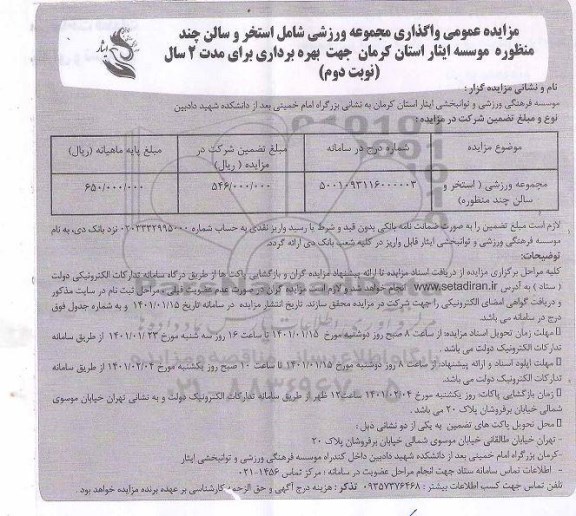 مزایده عمومی واگذاری مجموعه ورزشی شامل استخر و سالن چند
منظوره موسسه ایثار استان کرمان جهت بهره برداری برای مدت ۲ سال
(نوبت دوم)
ایثار
نام و نشانی مزایده گزار :
موسسه فرهنگی ورزشی و توانبخشی ایثار استان کرمان به نشانی بزرگراه امام خمینی بعد از دانشکده شهید دادبین
نوع و مبلغ تضمین شرکت در مزایده :
موضوع مزایده	شماره درج در سامانه	مبلغ تضمین شرکت در مزایده ( ریال)	مبلغ پایه ماهیانه (ریال)
مجموعه ورزشی ( استخر و سالن چند منظوره)	۵۰۰۱۰۹۳۱۱۶۰۰۰۰۰۳	۵۴۶/۰۰۰/۰۰۰	۶۵۰/۰۰۰/۰۰۰
لازم است مبلغ تضمین را به صورت ضمانت نامه بانکی بدون قید و شرط یا رسید واریز نقدی به حساب شماره ۰۲۰۳۳۳۲۹۹۵۰۰۰ نزد بانک دی، به نام
موسسه فرهنگی ورزشی و توانبخشی ایثار قابل واریز در کلیه شعب بانک دی ارائه گردد.
توضیحات:
کلیه مراحل برگزاری مزایده از دریافت اسناد مزایده تا ارائه پیشنهاد مزایده گران و بازگشایی پاکت ها از طریق درگاه سامانه تدارکات الکترونیکی دولت
( ستاد ) به آدرس www.setadiran.ir انجام خواهد شد و لازم است مزایده گران در صورت عدم عضویت قبلی، مراحل ثبت نام در سایت مذکور
و دریافت گواهی امضای الکترونیکی را جهت شرکت در مزایده محقق سازند. تاریخ انتشار مزایده در سامانه تاریخ ۱۴۰۱/۰۱/۱۵ و به شماره جدول فوق
درج در سامانه می باشد.
مهلت زمان تحویل اسناد مزایده: از ساعت ۸ صبح روز دوشنبه مورخ ۱۴۰۱/۰۱/۱۵ تا ساعت ۱۶ روز سه شنبه مورخ ۱۴۰۱/۰۱/۲۳ از طریق سامانه
تدارکات الکترونیک دولت می باشد .
مهلت اپلود اسناد و ارائه پیشنهاد: از ساعت ۸ روز دوشنبه مورخ ۱۴۰۱/۰۱/۱۵ تا ساعت ۱۰ صبح روز یکشنبه مورخ ۱۴۰۱/۰۲/۰۴ از طریق سامانه
تدارکات الکترونیک دولت می باشد.
زمان بازگشایی پاکات: روز یکشنبه مورخ ۱۴۰۱/۰۲/۰۴ ساعت۱۲ ظهر از طریق سامانه تدارکات الکترونیک دولت و به نشانی تهران خیابان موسوی
شمالی خیابان برفروشان پلاک ۲۰ می باشد .
محل تحویل پاکت های تضمین به یکی از دو نشانی ذیل :
- تهران خیابان طالقانی خیابان موسوی شمالی خیابان برفروشان پلاک ۲۰
-کرمان بزرگراه امام خمینی بعد از دانشکده شهید دادبین داخل کندراه موسسه فرهنگی ورزشی و توانبخشی ایثار
- اطلاعات تماس سامانه ستاد جهت انجام مراحل عضویت در سامانه : مرکز تماس ۱۴۵۶-۰۲۱
تلفن تماس جهت کسب اطلاعات بیشتر : ۰۹۳۵۷۳۷۶۴۶۸ تذکر : هزینه درج آگهی و حق الزحمه کارشناسی بر عهده برنده مزایده خواهد بود .